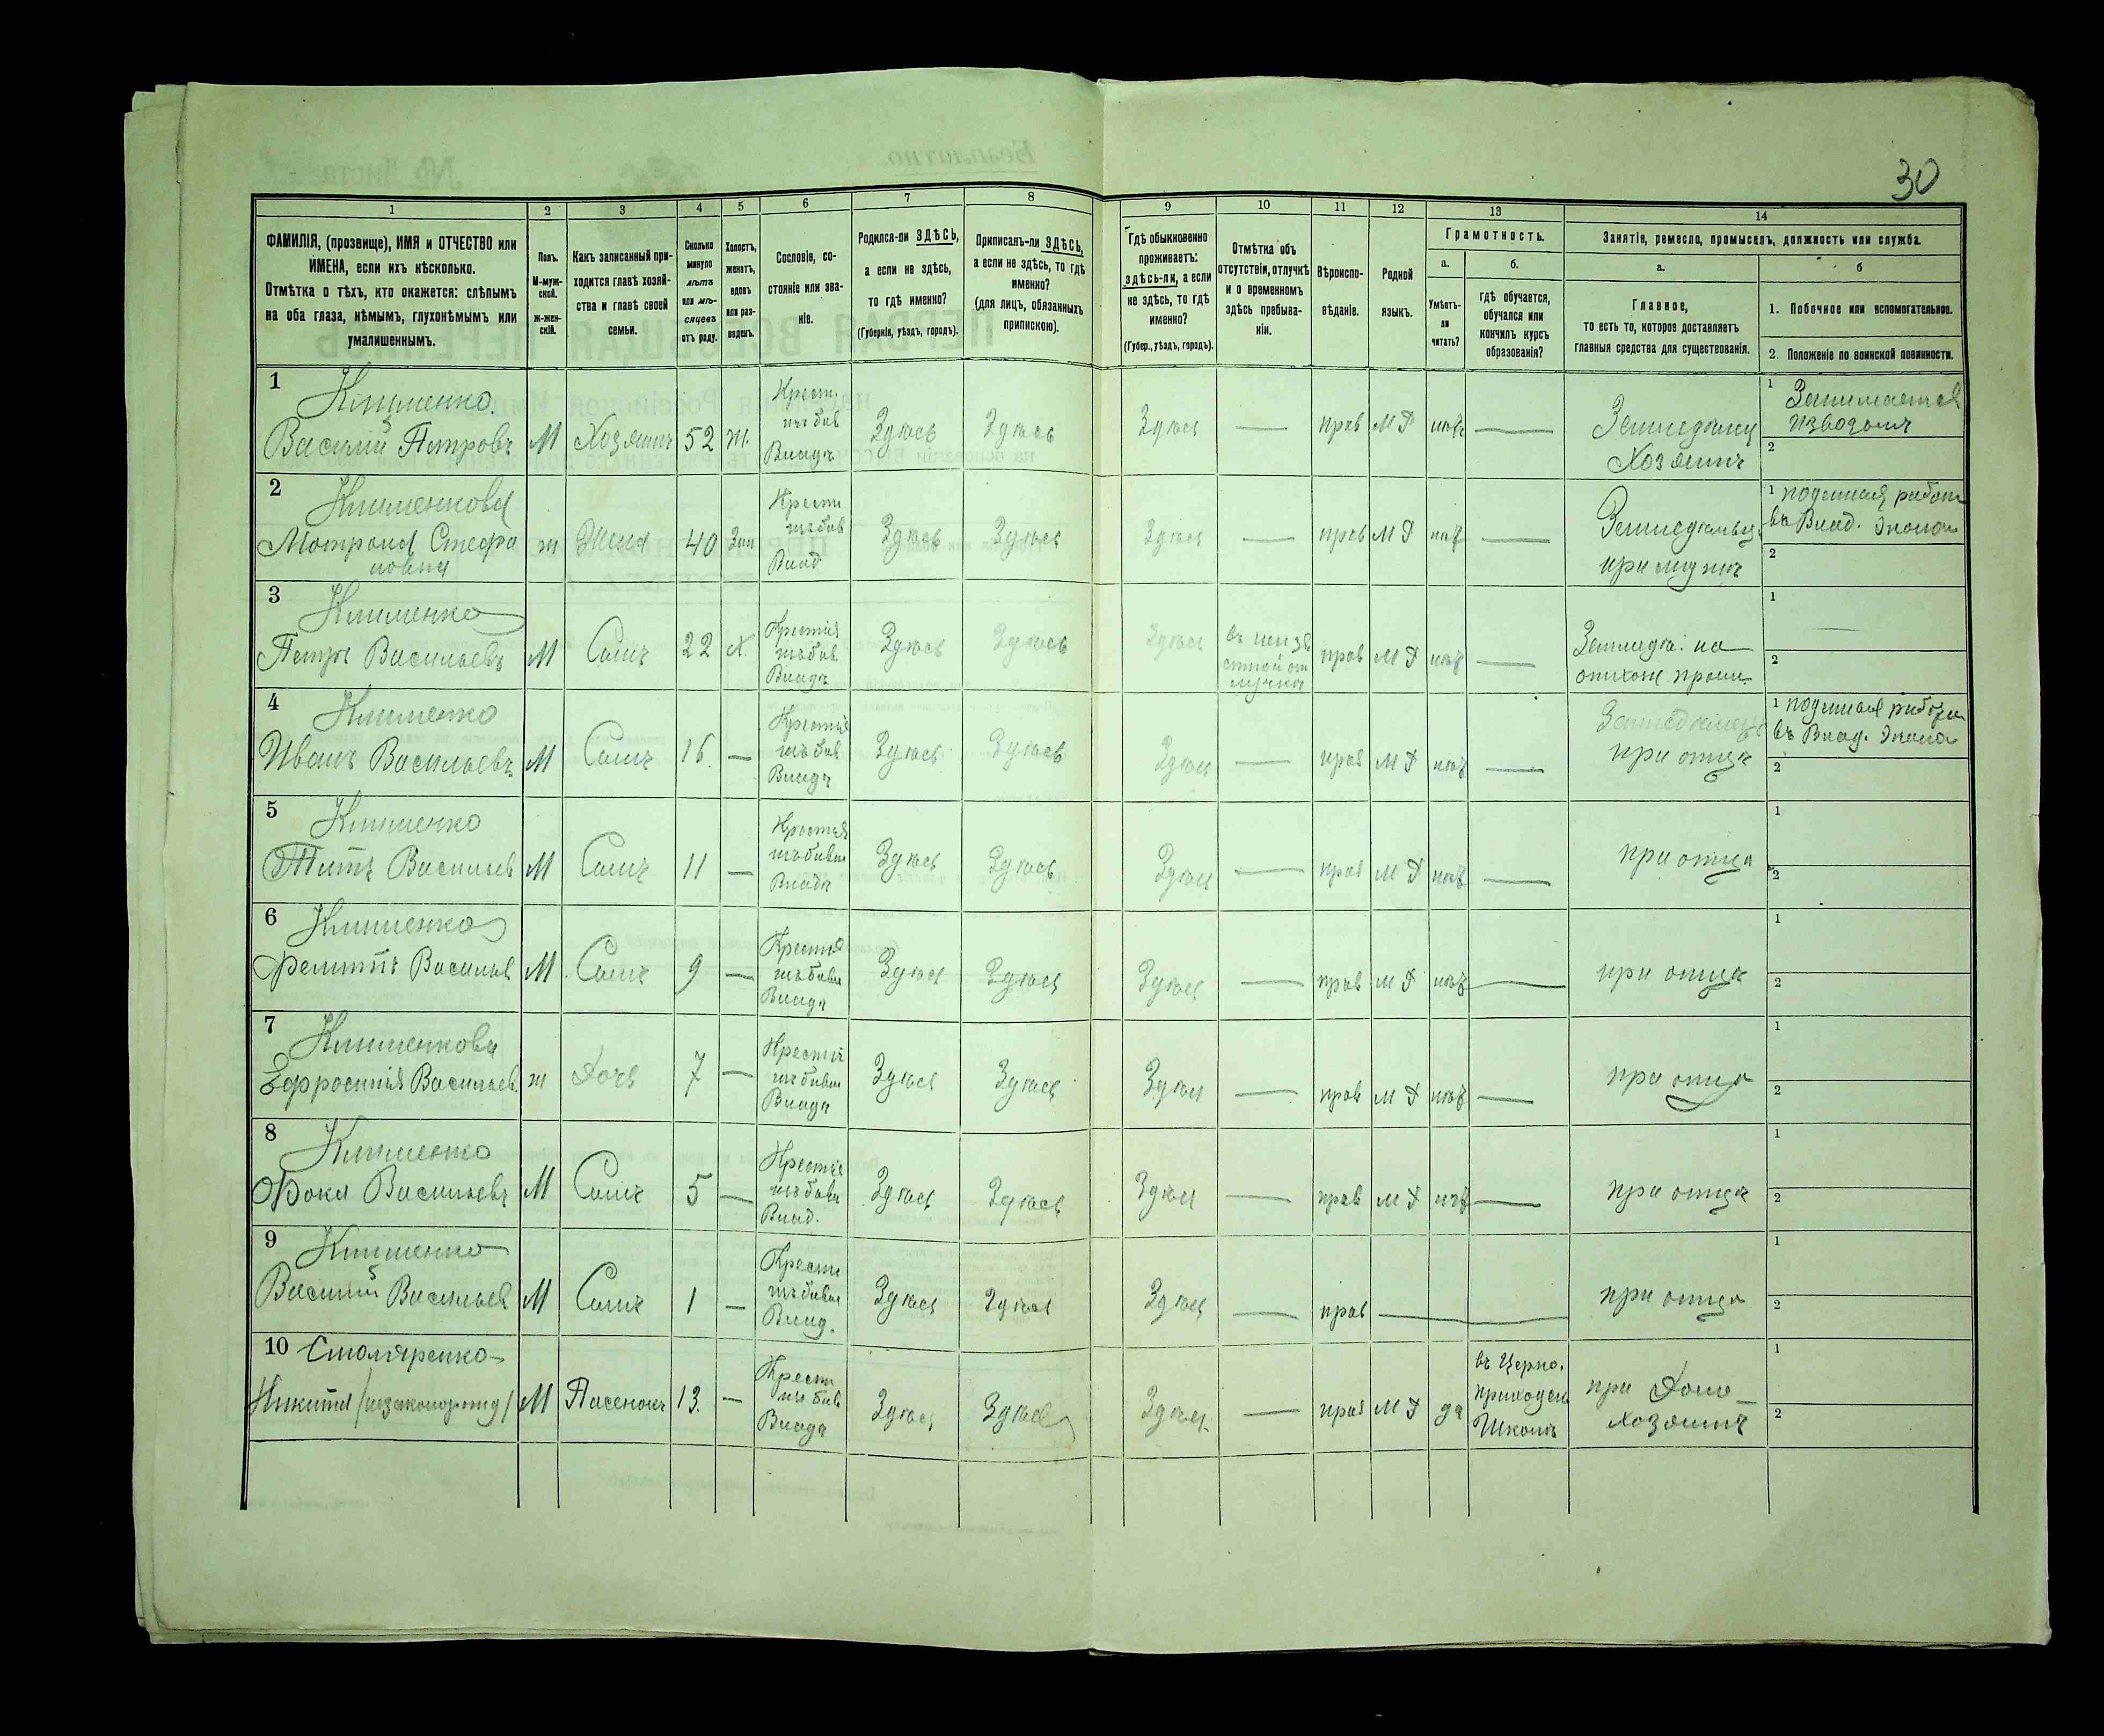 30
1
2
3
4
5
6
7
8
9
10
11
12
13
14
ФАМИЛІЯ, (прозвище), ИМЯ и ОТЧЕСТВО или
ИМЕНА, если ихъ нѣсколько.
Отмѣтка о тѣхъ, кто окажется: слѣпымъ
на оба глаза, нѣмымъ, глухонѣмымъ или
умалишеннымъ.
Полъ.
М-муж-
ской.
ж-жен-
скій.
Какъ записанный при-
ходится главѣ хозяй-
ства и главѣ своей
семьи.
Сколько
минуло
лѣтъ
или мѣ-
сяцевъ
отъ роду.
Холостъ,
женатъ,
вдовъ
или раз-
веденъ.
Сословіе, со-
стояніе или зва-
ніе.
Родился-ли ЗДѢСЬ,
а если не здѣсь,
то гдѣ именно?
(Губернія, уѣздъ, городъ).
Приписанъ-ли ЗДѢСЬ,
а если не здѣсь, то гдѣ
именно?
(для лицъ, обязанныхъ
припискою).
Гдѣ обыкновенно
проживаетъ:
здѣсь-ли, а если
не здѣсь, то гдѣ
именно?
(Губер., уѣздъ, городъ).
Отмѣтка объ
отсутствіи, отлучкѣ
и о временномъ
здѣсь пребыва-
ніи.
Вѣроиспо-
вѣданіе.
Родной
языкъ.
Грамотность.
а.
б.
Умѣетъ-
ли
читать?
гдѣ обучается,
обучался или
кончилъ курсъ
образованія?
Занятіе, ремесло, промыселъ, должность или служба.
а.
б
Главное,
то есть то, которое доставляетъ
главныя средства для существованія.
1. Побочное или вспомогательное.
2. Положеніе по воинской повинности.
1
Клименко
Василій Петровъ
М
Хозяинъ
52
Ж.
Крест.
изъ быв
Владѣ
Здѣсь
Здѣсь
Здѣсь
—
прав
М Р
нѣтъ
—
Земледѣлец
Хозяинъ
1 Занимается
извозомъ
2
2
Клименкова
Матрона Стефа
новна
ж
Жена
40
Зам
Крестя
изъ быв
Влад
Здѣсь
Здѣсь
Здѣсь
—
прав
М Р
нѣт
—
Земледѣльц.
при мужѣ
1 поденная работ
въ Влад. Эконом
2
3
Клименко
Петръ Васильевъ
М
Сынъ
22
Х.
Крестья
изъ быв
Владѣ
Здѣсь
Здѣсь
Здѣсь
въ неизв
стной от
лучкѣ
прав
М Р
нѣт
—
Земледѣ. на
отхож. пром.
1
2
4
Клименко
Иванъ Васильевъ
М
Сынъ
16.
—
Крестья
изъ быв
Владѣ
Здѣсь
Здѣсь
Здѣсь
—
прав
М Р
нѣт
—
Земледѣлец
при отцѣ
1 поденная работа
въ Влад. Эконо
2
5
Клименко
Титъ Васильев
М
Сынъ
11
—
Крестья
изъ бывш
Владѣ
Здѣсь
Здѣсь
Здѣсь
—
прав
М Р
нѣт
—
при отцѣ
1
2
6
Клименко
Васильев
М
Сынъ
9
—
Крестья
изъ бывш
Владѣ
Здѣсь
Здѣсь
Здѣсь
—
прав
М Р
нѣт
—
при отцѣ
1
2
7
Клименкова
Ефросинія Васильев.
ж
Дочь
7
—
Крестья
изъ бывш
Владѣ
Здѣсь
Здѣсь
Здѣсь
—
прав
М Р
нѣт
—
при отцѣ
1
2
8
Клименко
Фока Васильевъ
М
Сынъ
5
—
Крестья
изъ бывш
Влад.
Здѣсь
Здѣсь
Здѣсь
—
прав
М Р
нѣт
—
при отцѣ
1
2
9
Клименко
Василій Васильев
М
Сынъ
1
—
Крестья
изъ бывш
Влад.
Здѣсь
Здѣсь
Здѣсь
—
прав
—
при отцѣ
1
2
10
Столяренко
Никита (незаконорожд)
М
Пасенокъ
13.
—
Крестя
изъ быв
Владѣ
Здѣсь
Здѣсь
Здѣсь
—
прав
М Р
да
въ Церко.
приходск
Школѣ
при Домо
хозяинѣ
1
2